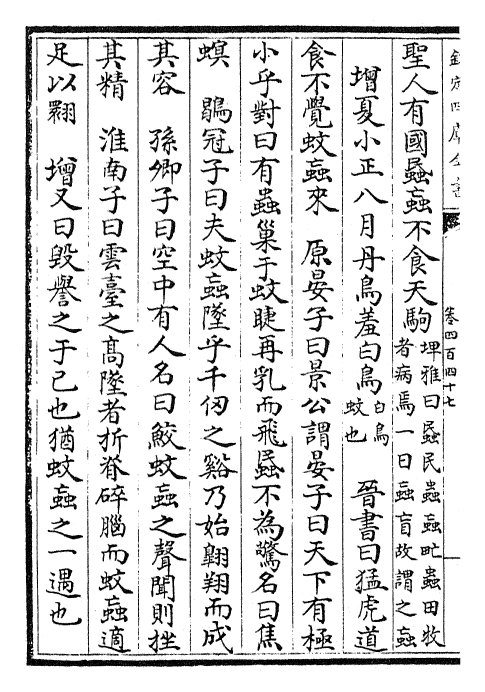 欽定四庫全書
卷四百四十七
聖人有國蟁䖟不食天駒埤雅曰蟁民蟲䖟甿蟲田牧
者病焉一曰䖟盲故謂之䖟
增夏小正八月丹鳥羞白鳥白鳥
蚊也　晉書曰猛虎道
食不覺蚊䖟來　原晏子曰景公謂晏子曰天下有極
小乎對曰有蟲巢于蚊睫再乳而飛蟁不為驚名曰焦
螟　鶡冠子曰夫蚊䖟墜乎千仞之谿乃始翺翔而成
其容　孫卿子曰空中有人名曰鮫蚊䖟之聲聞則挫
其精　淮南子曰雲臺之髙墜者折脊碎腦而蚊䖟適
足以翾　增又曰毁譽之于己也猶蚊䖟之一遇也